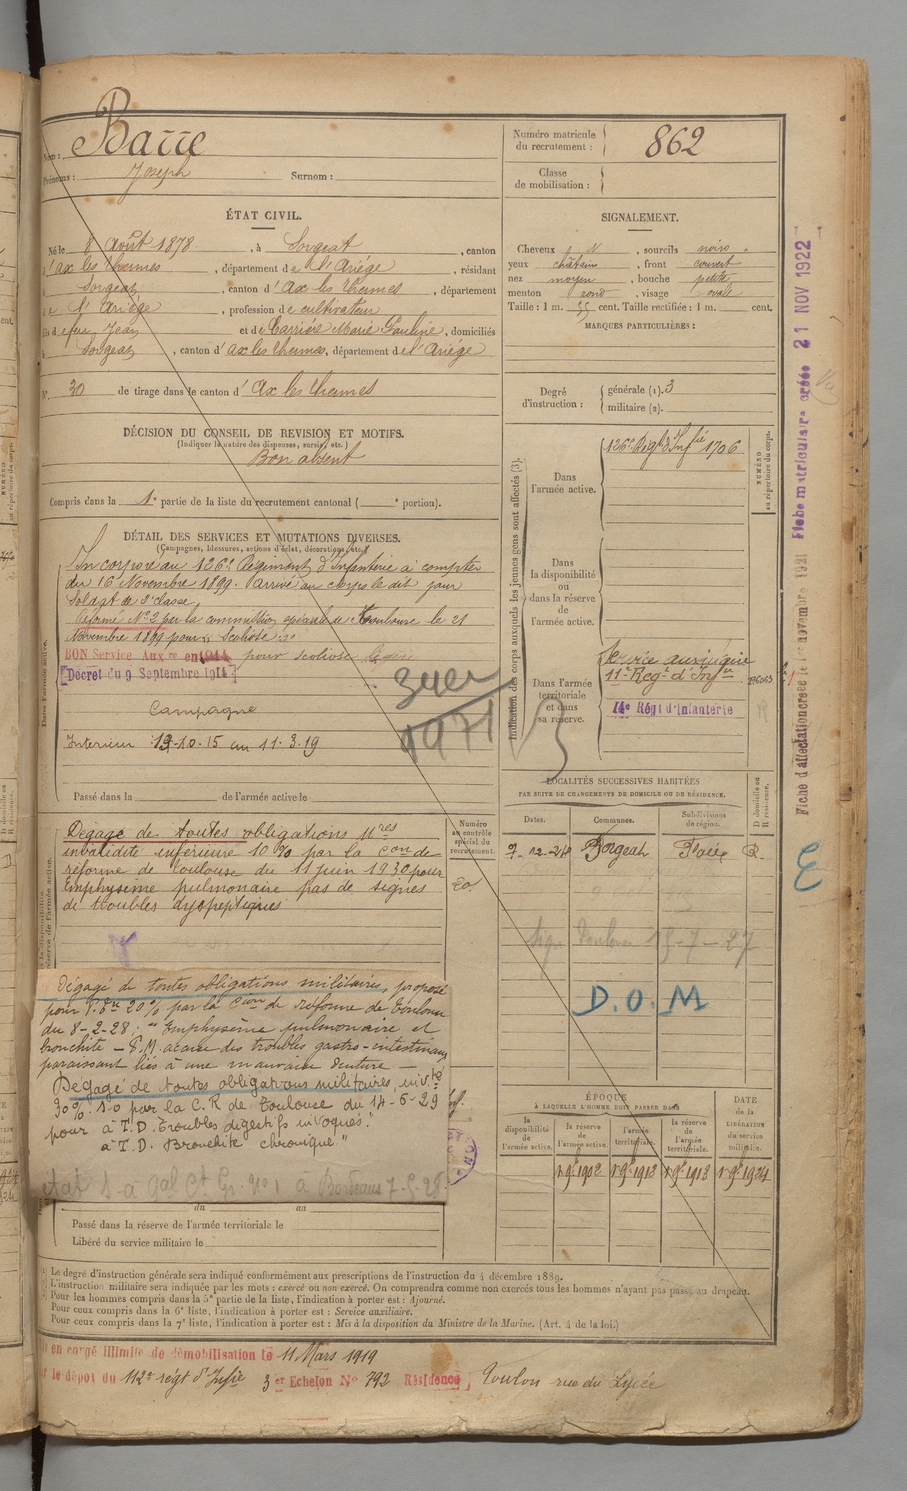 Nom : Barre
Prénoms : Joseph Surnom :
Numéro matricule
du recrutement : 862
Classe
de mobilisation :
ÉTAT CIVIL.
Né le 8 Août 1878, à Sorgeat, canton
d'ax les thermes, département de l'Ariége, résidant
à Sorgeat, canton d'Ax les thermes, département
de l'Ariége, profession de cultivateur
fils de feu Jean et de Carrière Marie Pauline, domiciliés
à Sorgeat, canton d'ax les thermes, département de l'Ariége
N° 30 de tirage dans le canton d'Ax les thermes
SIGNALEMENT.
Cheveux N, sourcils noirs
yeux châtain, front couvert
nez moyen, bouche petite
menton rond, visage ovale
Taille : 1 m. 55 cent. Taille rectifiée : 1 m. cent.
MARQUES PARTICULIÈRES :
Degré
d'instruction :
générale (1). 3
militaire (2).
DÉCISION DU CONSEIL DE REVISION ET MOTIFS.
(Indiquer la nature des dispenses, sursis, etc.)
Bon absent
Compris dans la 1e partie de la liste du recrutement cantonal ( e portion).
DÉTAIL DES SERVICES ET MUTATIONS DIVERSES.
(Campagnes, blessures, actions d'éclat, décorations, etc.)
Incorporé au 126e Régiment d'Infanterie à compter
du 16 Novembre 1899. Arrivé au corps le dit jour
Soldat de 2e classe
Réformé N° 2 par la commission spéciale de Toulouse le 21
Novembre 1899 pour Scoliose
BON Service Auxre en 1914 pour scoliose légère
Décret du 9 Septembre 1914
Campagne
Intérieur 13-10-15 au 11.3.19
Passé dans la de l'armée active le
Dans l'armée active.
Indication des corps auxquels les jeunes gens sont affectés (3).
Dans
l'armée active.
126e Régt d'Infie 1706
NUMÉRO
au répertoire du corps.
Dans
la disponibilité
ou
dans la réserve
de
l'armée active.
Dans l'armée
territoriale
et dans
sa réserve.
Service auxiliaire
11e Régt d'Infie
14e Régt d'Infanterie
1971
Dégagé de toutes obligations Mres
invalidité inférieure 10% par la Con de
réforme de Toulouse du 11 juin 1930 pour
Emphysème pulmonaire pas de signes
de troubles dyspeptiques
Numéro
au contrôle
spécial du
recrutement.
LOCALITÉS SUCCESSIVES HABITÉES
PAR SUITE DE CHANGEMENTS DE DOMICILE OU DE RÉSIDENCE.
Dates. Communes. Subdivisions
de région. D domicile ou
R résidence.
7-12-24 Sorgeat Foix R
Toulon 15-7-27
D.O.M
Dégagé de toutes obligations militaires, proposé
pour P. 20% par la Con de réforme de Toulon
du 8-2-28 ; "Emphysème pulmonaire et
bronchite – P.M. accuse des troubles gastro-intestinaux
paraissant liés à une mauvaise denture –
Dégagé de toutes obligations militaires, invté
30% par la C.R de Toulouse du 14-6-29
pour à I.D. Troubles digestifs invoqués.
à I.D. Bronchite chronique"
à Bordeaux
ÉPOQUE
À LAQUELLE L'HOMME DOIT PASSER DANS
la
disponibilité
de
l'armée active.
la réserve
de
l'armée active.
l'armée
territoriale.
la réserve
de
l'armée
territoriale.
DATE
de la
LIBÉRATION
du service
militaire.
1 9e 1902 1 9e 1912 1 9e 1918 1 9e 1924
du au
Passé dans la réserve de l'armée territoriale le
Libéré du service militaire le
Le degré d'instruction générale sera indiqué conformément aux prescriptions de l'instruction du 4 décembre 1889.
L'instruction militaire sera indiquée par les mots : exercé ou non exercé. On comprendra comme non exercés tous les hommes n'ayant pas passé au drapeau.
Pour les hommes compris dans la 5e partie de la liste, l'indication à porter est : Ajourné.
Pour ceux compris dans la 6e liste, l'indication à porter est : Service auxiliaire.
Pour ceux compris dans la 7e liste, l'indication à porter est : Mis à la disposition du Ministre de la Marine. (Art. 4 de la loi.)
en congé illimité de démobilisation le 11 Mars 1919
le dépot du 112e régt d'Infie 3er Echelon N° 792 Résidence, Toulon rue du Lycée
Fiche d'affectation créée le 1er novembre 1921 Fiche matriculaire créée 21 NOV 1922